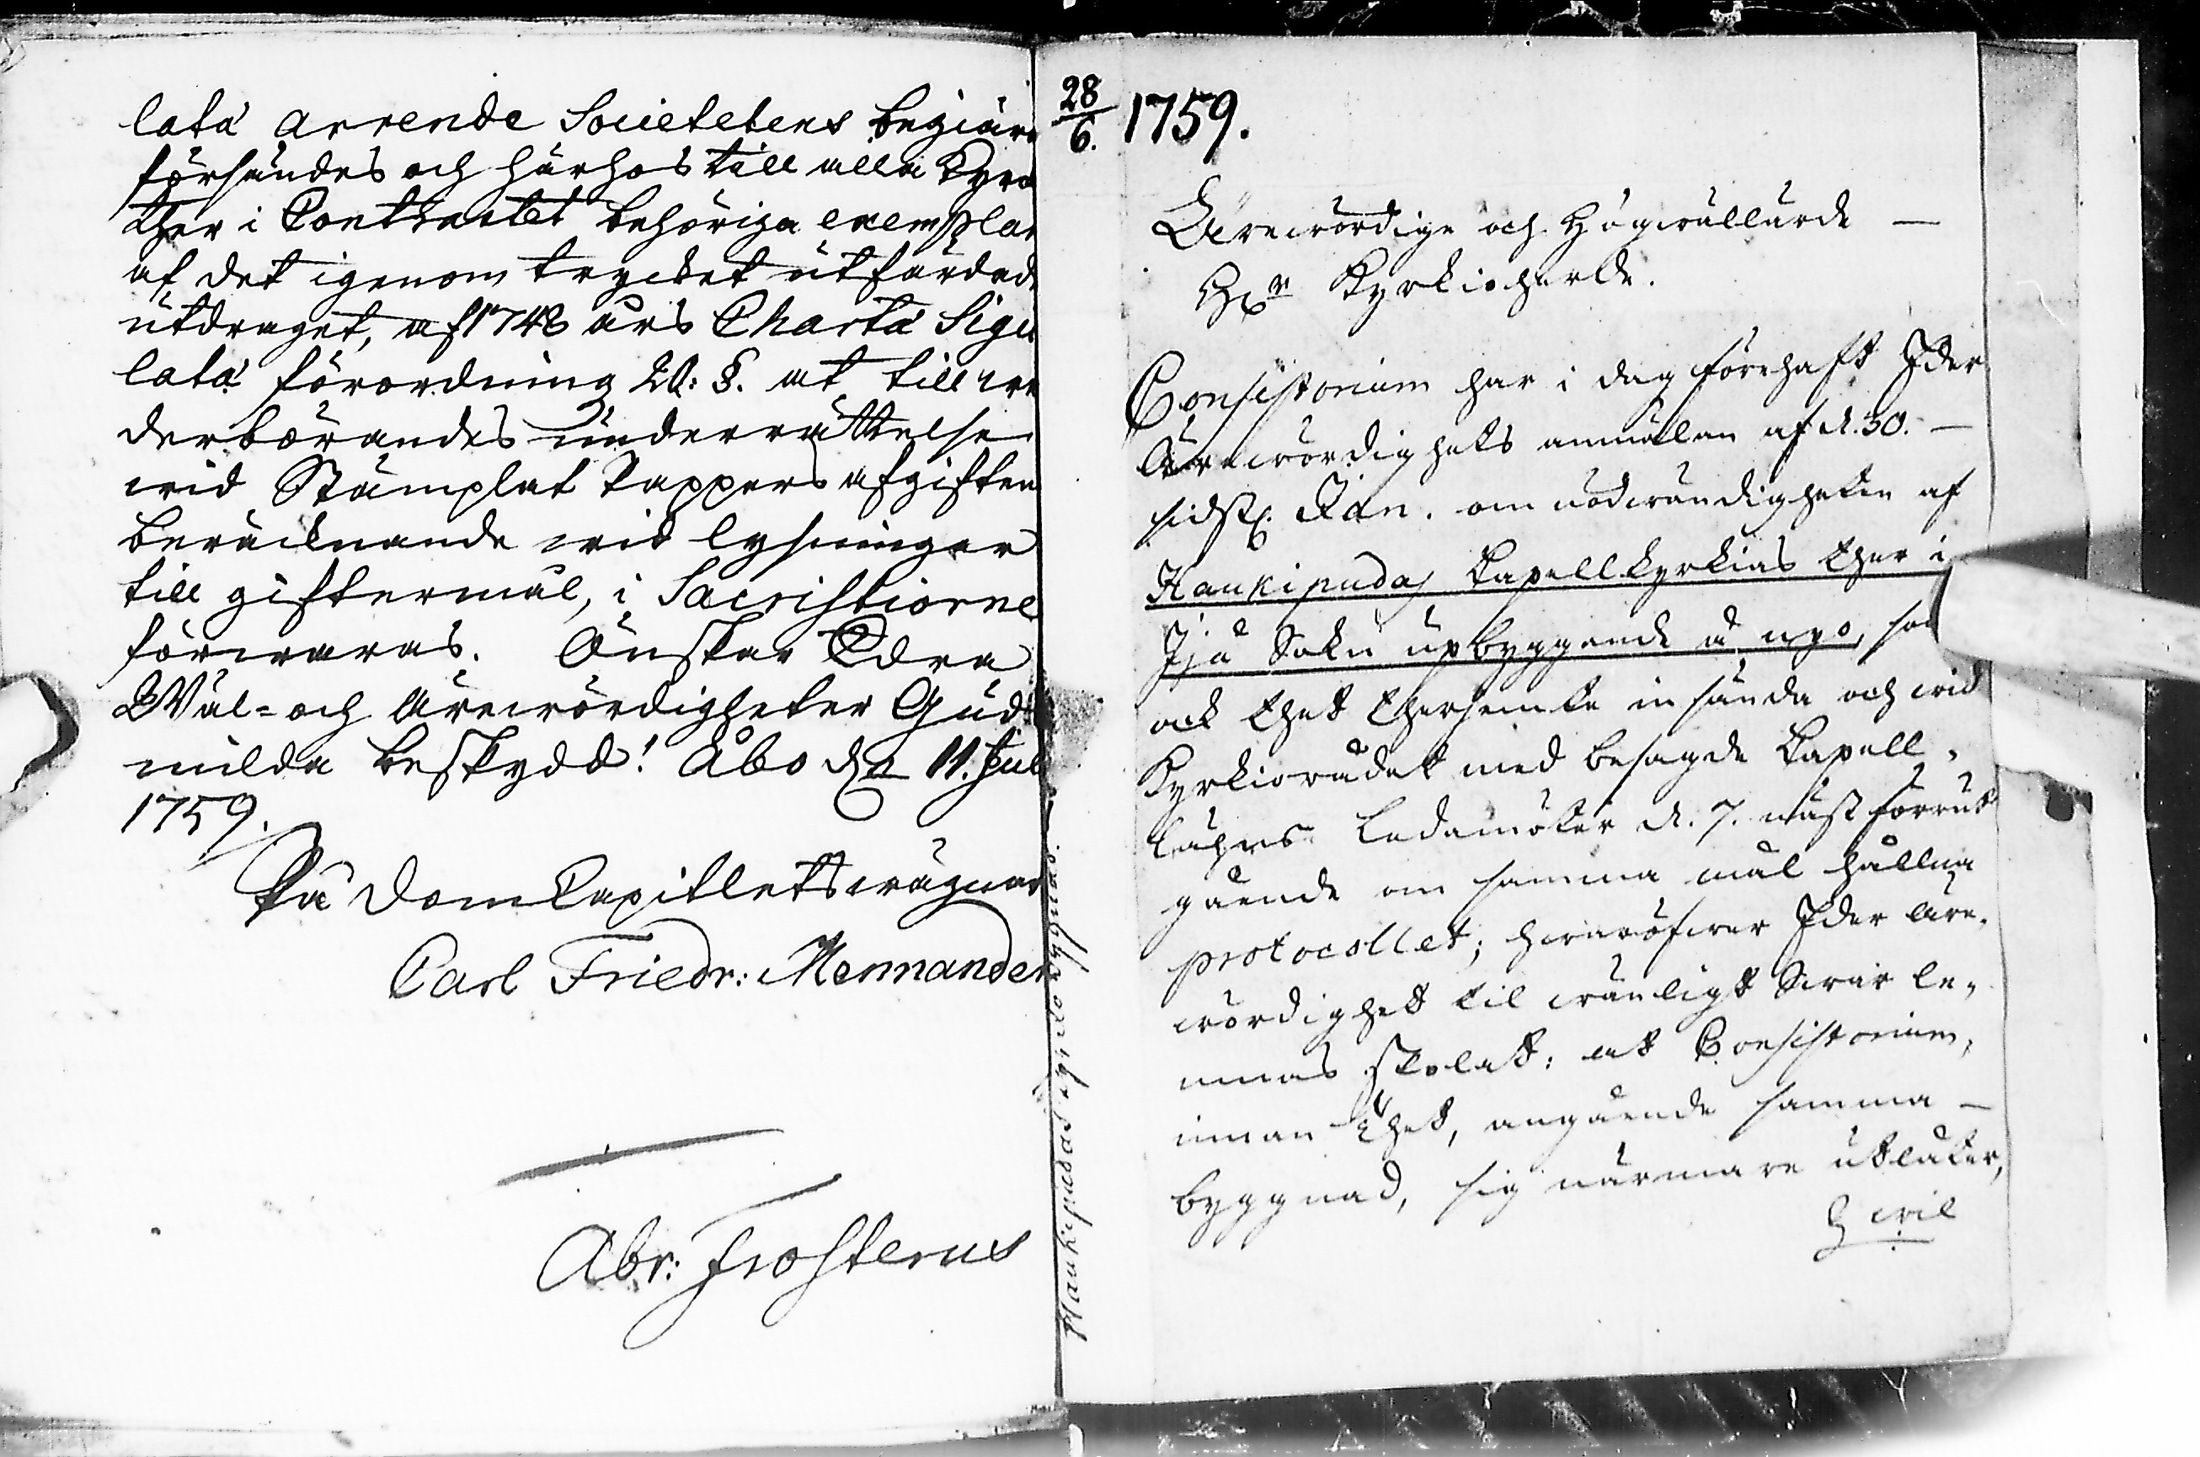 lata arrende Societetens begiära
försändes och härhos till alla Kyrc
kher i Contractet behöriga exemplar
af det igenom trycket utfärdade
utdraget, af 1748 års Charta Sigil
lata förordning 20: §. at till we
derbörandes underrättelse
wid Stämplat Pappers afgiften
beräcknande wid lysningar
till giftermål, i Sacristiorne
förwaras. Önskar Edra
Wäl- och Ärewördigheter Guds
milda beskydd! Åbo d. 11. Jul
1759.
På DomCapitlets wägnar
Carl Friedr: Mennander
Abr: Frosterus
28/6. 1759.
Ärewördige och Högwällärde —
H:r Kyrkioherde.
Consistorium har i dag förehaft Eder
Ärewördighets anmälan af d. 30. —
sidstl. Jan. om nödwändigheten af
Haukipudas Capellkyrkias ther i
Ijå Sokn upbyggande å nyo, så
ock thet thersamte insända och wid
Kyrkiorådet med besagde Capell-
lahrs Ledamöter d. 7. näst förrut
gående om samma mål hållna
protocollet; hwaröfwer Eder Äre-
wördighet til wänligt Swar le-
mnas skolat: at Consistorium,
innan thet, angående samma —
byggnad, sig närmare utlåter,
wil
Haukipudas kyrkobyggnad.